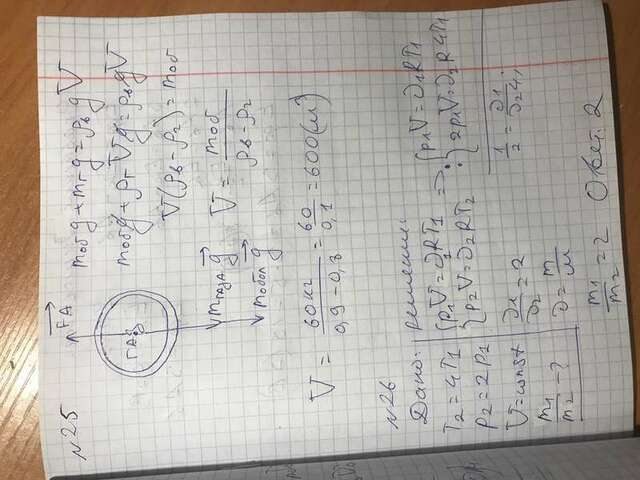 №25
FA
ГАЗ
mГАЗА g
mобол g
mоб g + mг g = ρв g V
mоб g + ρг V g = ρв g V
V(ρв - ρг) = mоб
V = mоб / (ρв - ρг)
V = 60кг / (0,9 - 0,8) = 60 / 0,1 = 600 (м³)
№26
Дано:
T2 = 4T1
p2 = 2p1
V = const
m1/m2 - ?
решение:
{ p1V = ν1RT1
{ p2V = ν2RT2
=> :
{ p1V = ν1RT1
{ 2p1V = ν2R4T1
1/2 = ν1/ν2 4 ;
ν1/ν2 = 2
ν = m/M
m1/m2 = 2 Ответ: 2